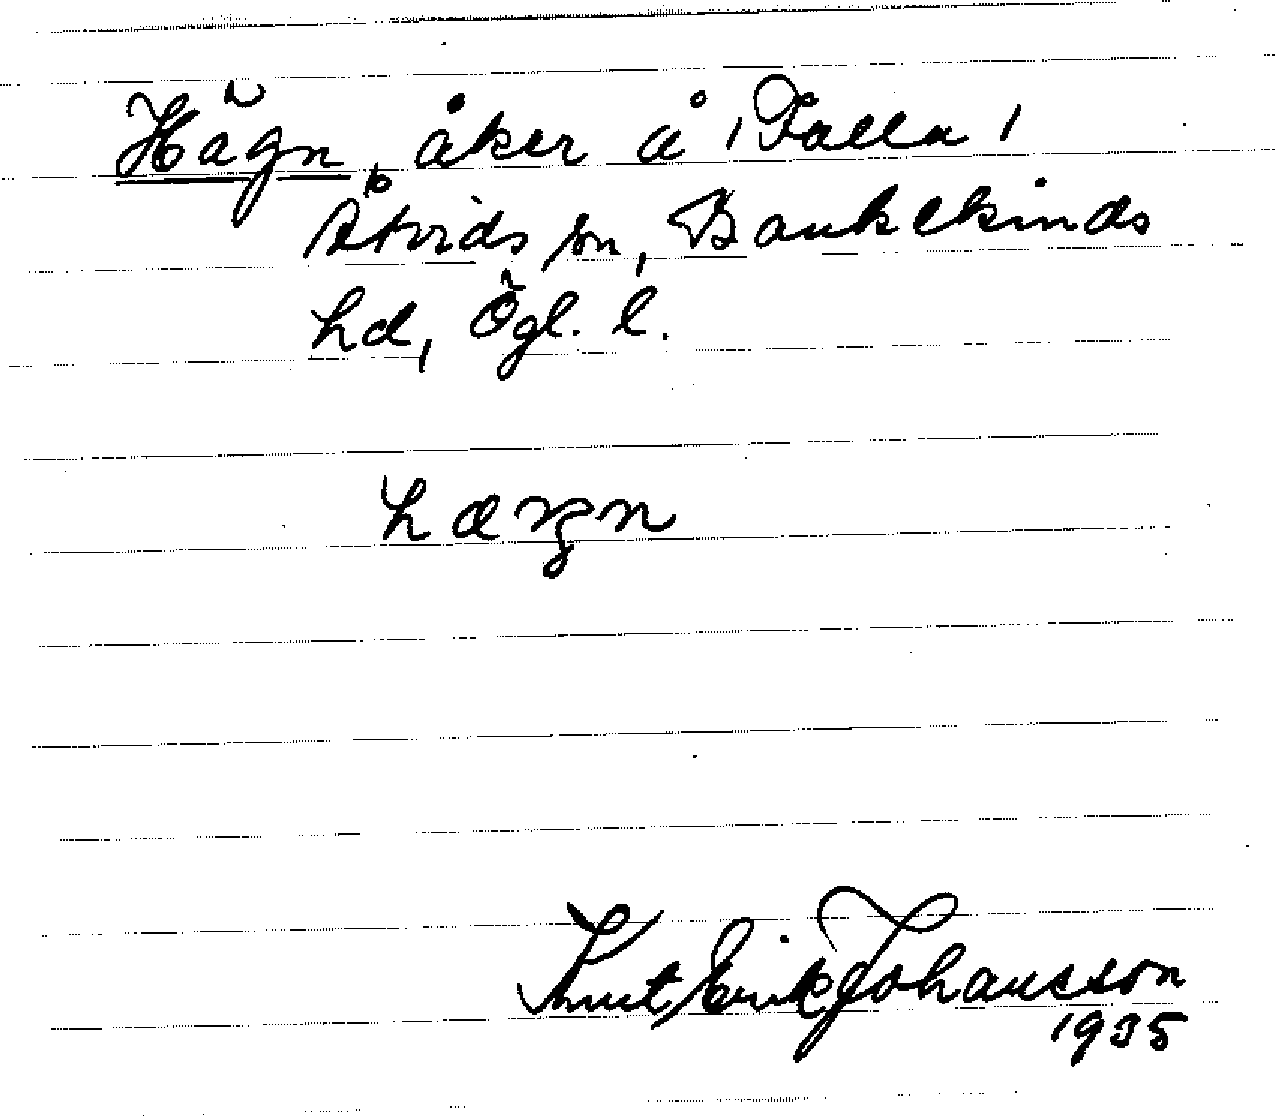 Hägn, åker å /Falla/
Åtvids sn, Bankekinds
hd, Ögl. l.
hæŋn
Knut Erik Johansson
1935